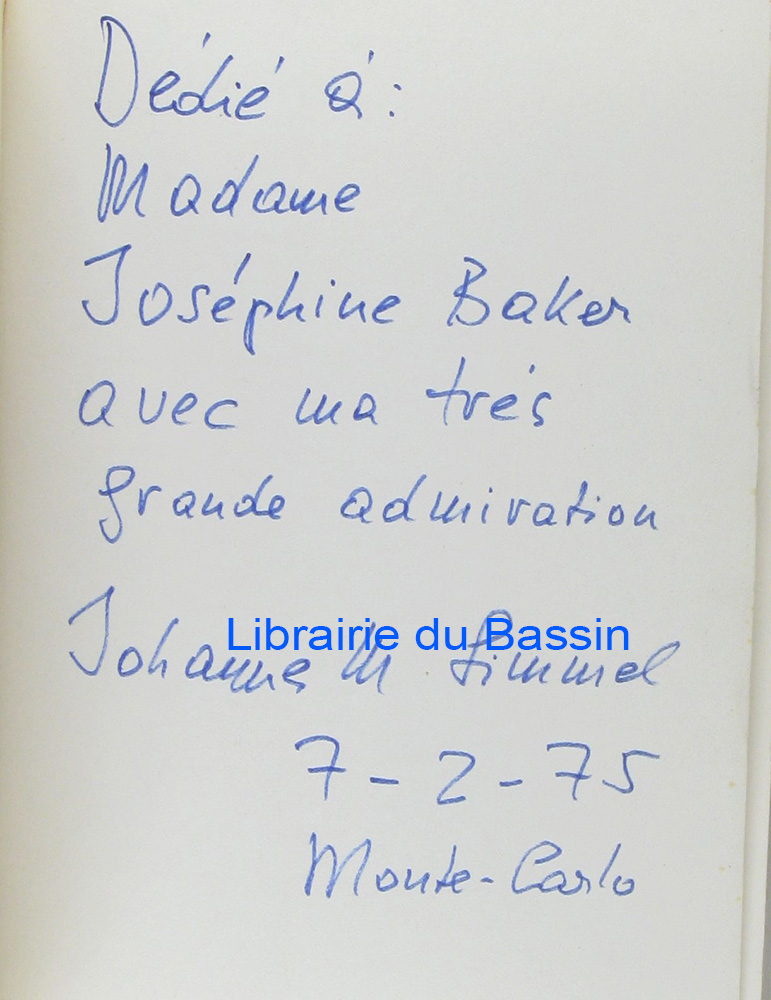 Dédié á:
Madame
Joséphine Baker
avec ma trés
grande admiration
Librairie du Bassin
Johannes M Simmel
7-2-75
Monte-Carlo